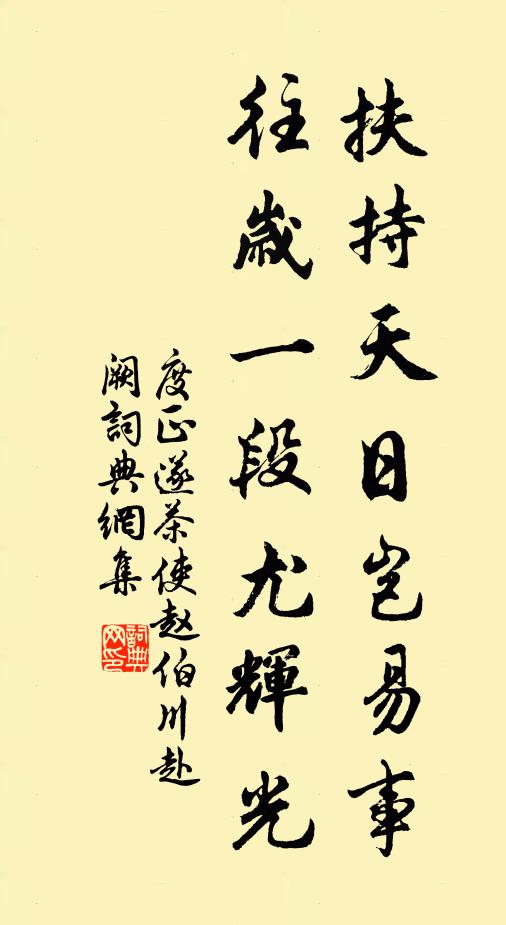 扶持天日岂易事
往歲一段尤輝光
度正送茶使赵伯川赴
阙詞典網集
詞典网印